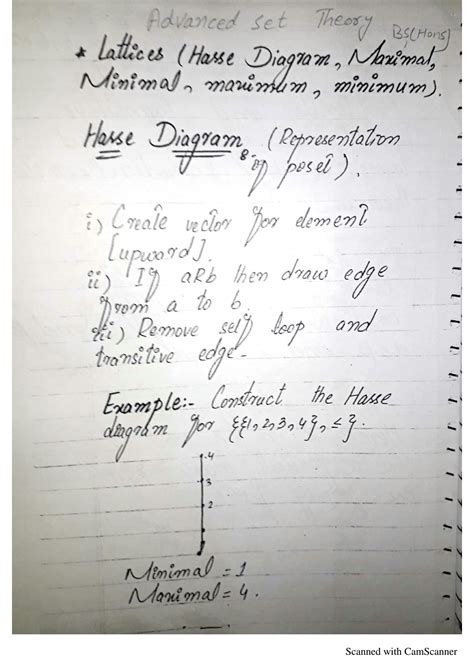 Advanced set Theory BS(Hons)
* Lattices (Hasse Diagram, Maximal,
Minimal, maximum, minimum).
Hasse Diagram (Representation
of poset).
i) Create vector for element
[upward].
ii) If aRb then draw edge
from a to b.
iii) Remove self loop and
transitive edge-
Example:- Construct the Hasse
diagram for {{1,2,3,4}, ≤}.
4
3
2
Minimal = 1
Maximal = 4.
Scanned with CamScanner